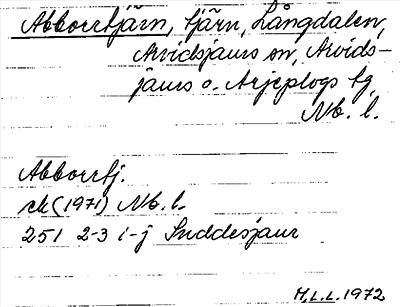 Abborrtjärn, tjärn, Långdalen,
Arvidsjaurs sn, Arvids-
jaurs o. Arjeplogs tg,
Nb. l.
Abborrtj.
ek (1971) Nb. l.
25I 2-3 i-j Suddesjaur
M.L.L. 1972